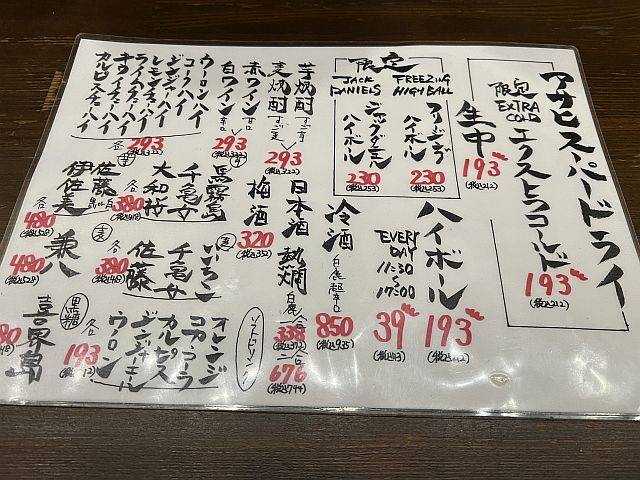 アサヒスーパードライ
限定
EXTRA
COLD
エクストラコールド
193
(税込212)
生中
193
(税込212)
限定
FREEZING
HIGHBALL
フリージング
ハイボール
230
(税込253)
JACK
DANIELS
ジャックダニエル
ハイボール
230
(税込253)
ハイボール
193
EVERY
DAY
11:30
17:00
39
冷酒
白鹿 超辛口
850
(税込935)
日本酒
熱燗
白鹿
一合
338
二合
676
(税込744)
芋焼酎
麦焼酎
293
梅酒
320
(税込352)
赤ワイン
白ワイン
辛口
293
(税込322)
ウーロンハイ
コークハイ
ジンジャハイ
レモンチューハイ
ライムチューハイ
キウイチューハイ
カルピスチューハイ
各293
(税込322)
芋
黒霧島
千亀女
大和桜
各380
佐藤
伊佐美
各480
(税込528)
麦
いいちこ
千亀女
佐藤
各380
兼八
480
(税込528)
黒糖
喜界島
ソフトドリンク
オレンジ
コカコーラ
カルピス
ジンジャエール
ウーロン
各193